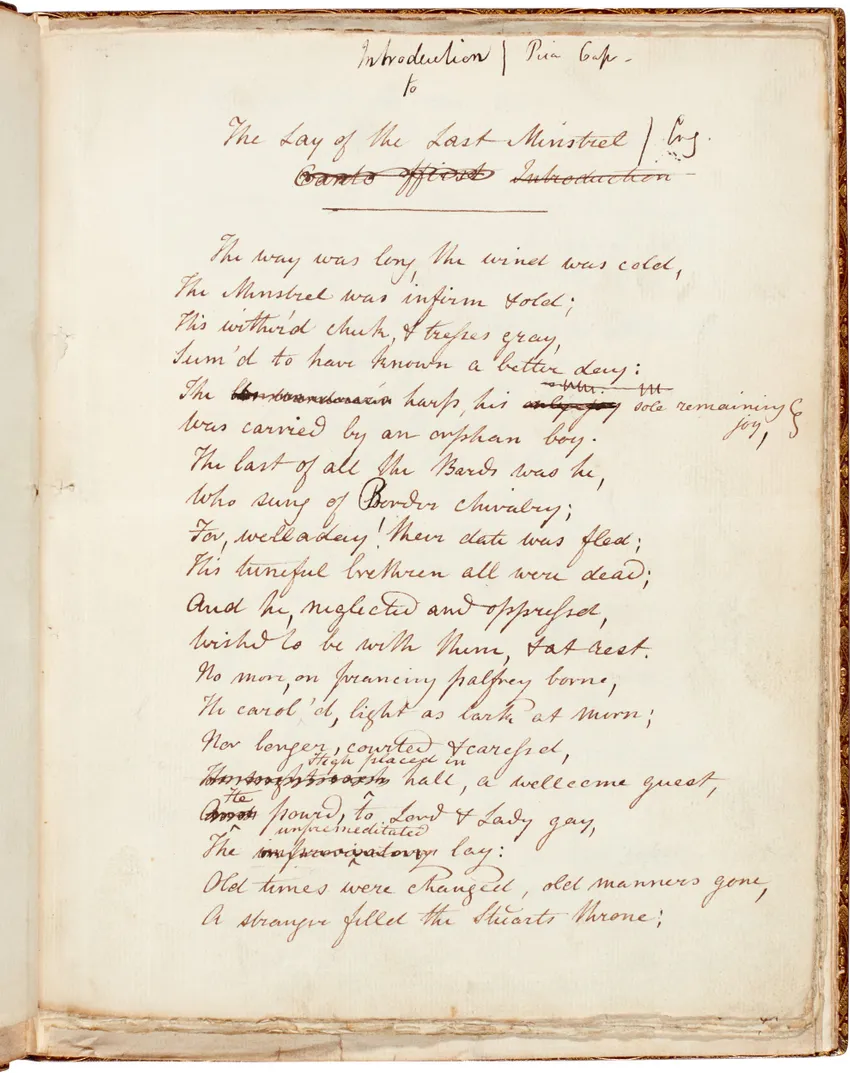 Introduction / Pica Cap -
to
The Lay of the Last Minstrel / Eng.
Canto ffirst Introduction
The way was long, the wind was cold,
The Minstrel was infirm & old;
His wither'd cheek, & tresses gray,
Seem'd to have known a better day:
The harp, his sole remaining
joy,
was carried by an orphan boy.
The last of all the Bards was he,
who sung of Border chivalry;
For, welladay! their date was fled;
His tuneful brethren all were dead;
And he, neglected and oppressed,
wished to be with them, & at rest.
No more, on prancing palfrey borne,
He carol'd, light as lark at morn;
Nor longer, courted & caressed,
High placed in
hall, a wellcome guest,
He
pourd, to Lord & Lady gay,
unpremeditated
The lay:
Old times were changed, old manners gone,
A stranger filled the Stuarts throne;